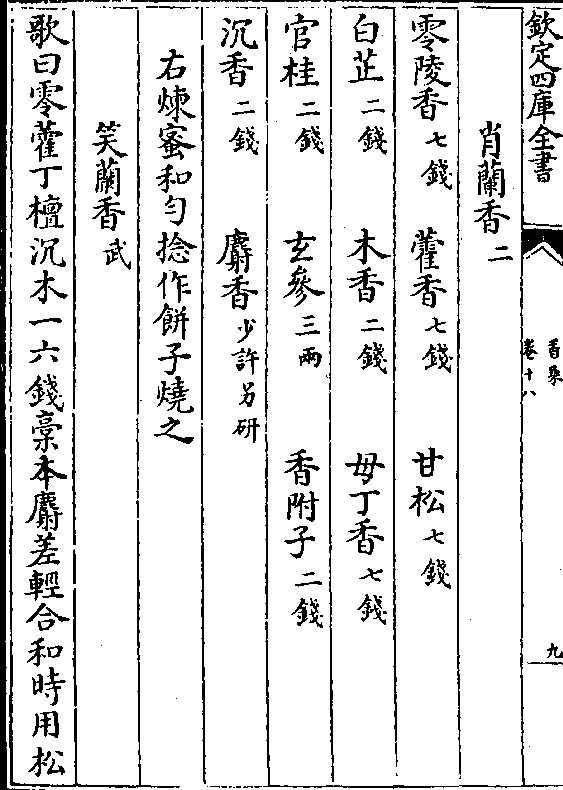 欽定四庫全書
香乘
卷十八
九
肖蘭香二
零陵香七錢　藿香七錢　甘松七錢
白芷二錢　木香二錢　母丁香七錢
官桂二錢　玄參三兩　香附子二錢
沉香二錢　麝香少許另研
右煉蜜和勻捻作餅子燒之
笑蘭香武
歌曰零藿丁檀沉木一六錢藁本麝差輕合和時用松